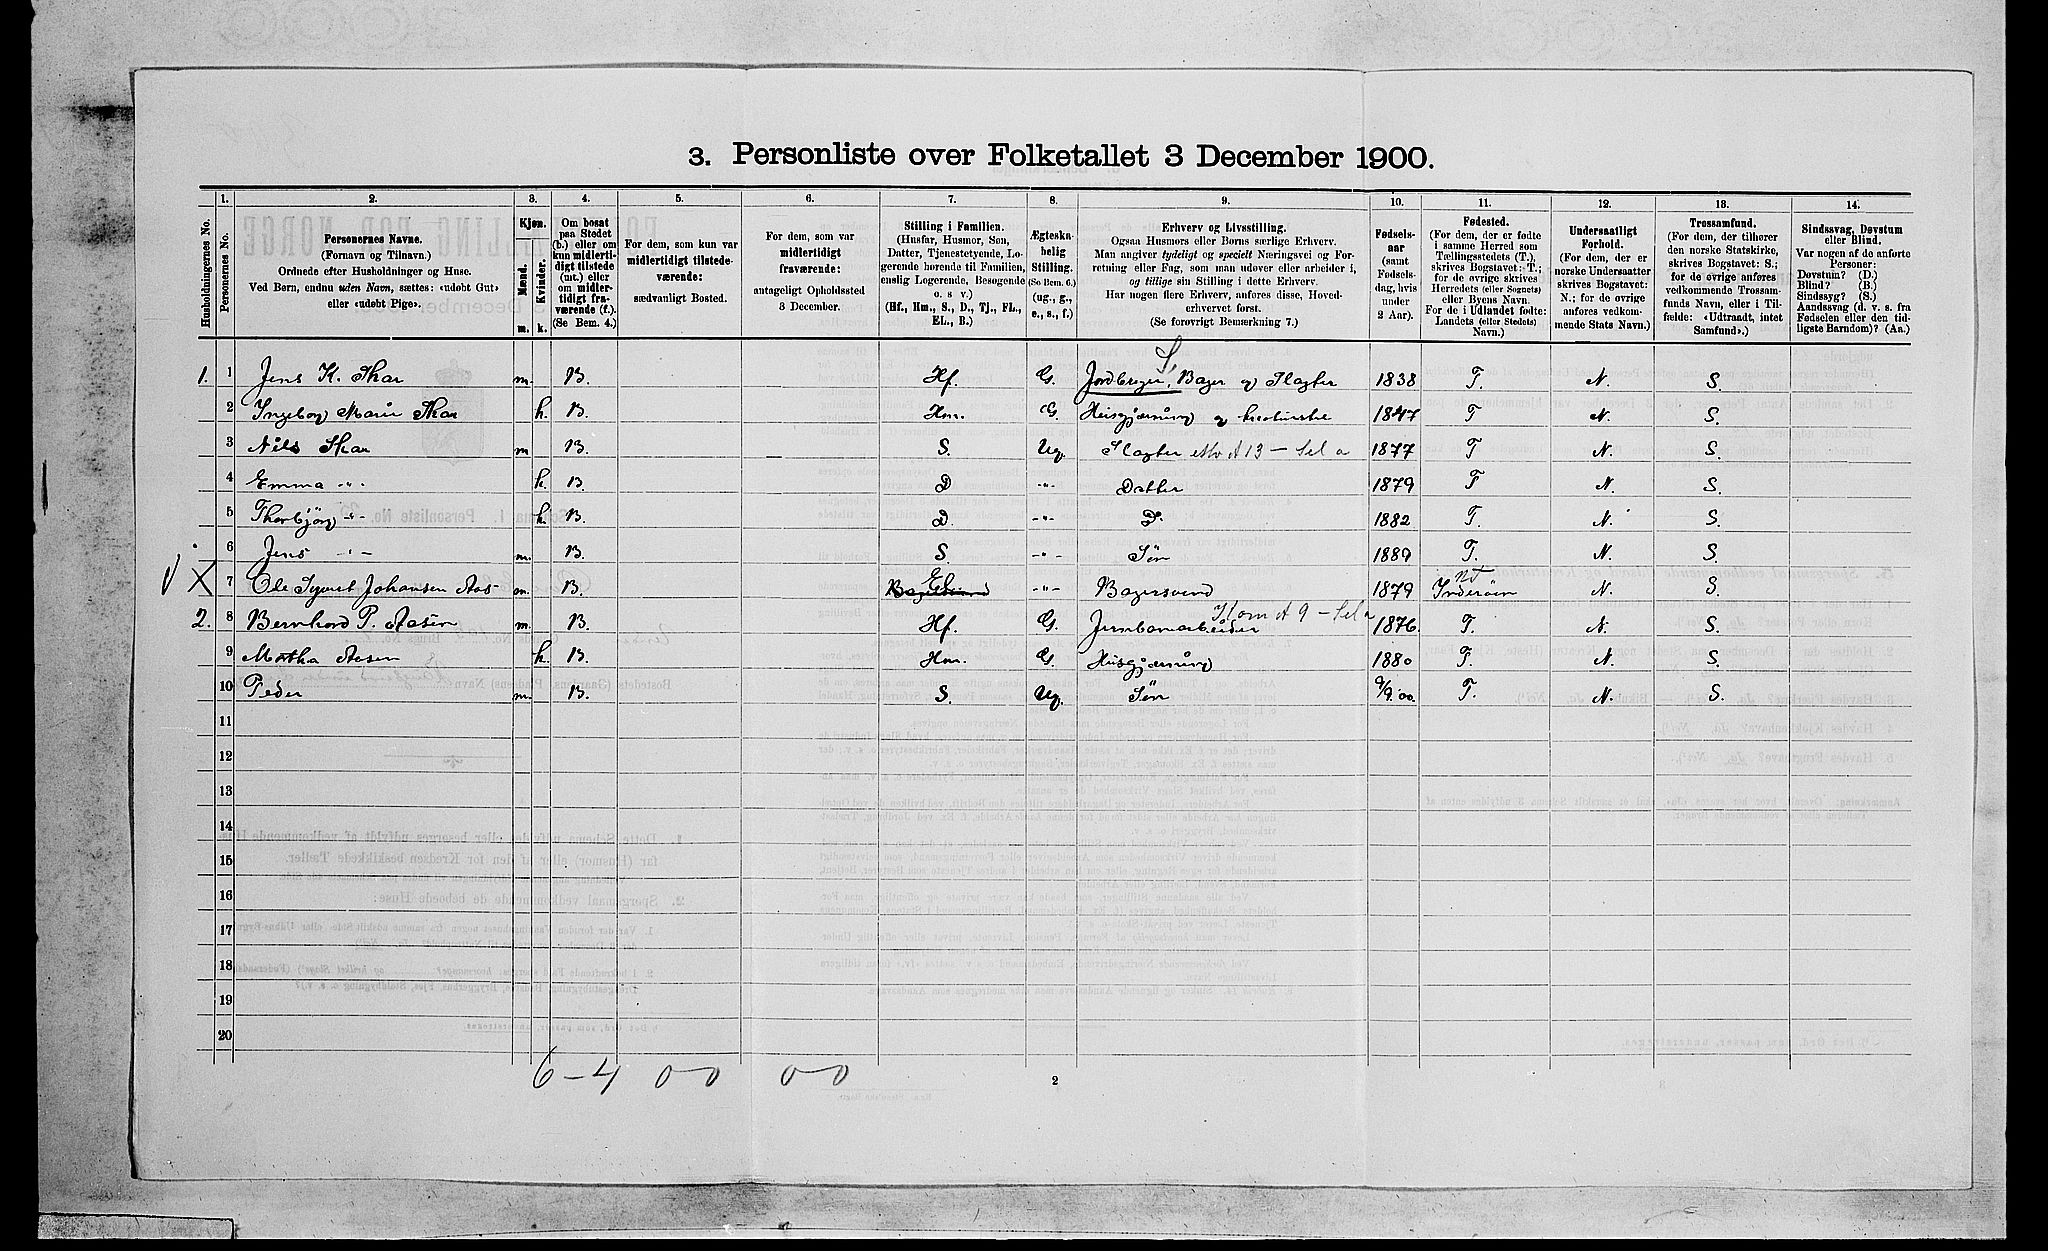 3. Personliste over Folketallet 3 December 1900.
Husholdningernes No.
1. Personernes No.
2. Personernes Navne.
(Fornavn og Tilnavn.)
Ordnede efter Husholdninger og Huse.
Ved Børn, endnu uden Navn, sættes: «udøbt Gut»
eller «udøbt Pige».
3. Kjøn.
Mænd. m.
Kvinder. k.
4. Om bosat
paa Stedet
(b.) eller om
kun midlerti-
digt tilstede
(mt.) eller
om midler-
tidigt fra-
værende (f.).
(Se Bem. 4.)
5. For dem, som kun var
midlertidigt tilstede-
værende:
sædvanligt Bosted.
6. For dem, som var
midlertidigt
fraværende:
antageligt Opholdssted
3 December.
7. Stilling i Familien.
(Husfar, Husmor, Søn,
Datter, Tjenestetyende, Lo-
gerende hørende til Familien,
enslig Logerende, Besøgende
o. s. v.)
(Hf., Hm., S., D., Tj., FL.,
EL., B.)
8. Ægteska-
belig
Stilling.
(Se Bem. 6.)
(ug., g.,
e., s., f.)
9. Erhverv og Livsstilling.
Ogsaa Husmors eller Børns særlige Erhverv.
Man angiver tydeligt og specielt Næringsvei og For-
retning eller Fag, som man udøver eller arbeider i,
og tillige sin Stilling i dette Erhverv.
Har nogen flere Erhverv, anføres disse, Hoved-
erhvervet først.
(Se forøvrigt Bemærkning 7.)
10. Fødsels-
aar
(samt
Fødsels-
dag, hvis
under
2 Aar).
11. Fødested.
(For dem, der er fødte
i samme Herred som
Tællingsstedets (T.),
skrives Bogstavet: T.;
for de øvrige skrives
Herredets (eller Sognets)
eller Byens Navn.
For de i Udlandet fødte:
Landets (eller Stedets)
Navn.)
12. Undersaatligt
Forhold.
(For dem, der er
norske Undersaatter
skrives Bogstavet:
N.; for de øvrige
anføres vedkom-
mende Stats Navn.)
13. Trossamfund.
(For dem, der tilhører
den norske Statskirke,
skrives Bogstavet: S.;
for de øvrige anføres
vedkommende Trossam-
funds Navn, eller i Til-
fælde: «Udtraadt, intet
Samfund».)
14. Sindssvag, Døvstum
eller Blind.
Var nogen af de anførte
Personer:
Døvstum? (D.)
Blind? (B.)
Sindssyg? (S.)
Aandssvag (d. v. s. fra
Fødselen eller den tid-
ligste Barndom)? (Aa.)
1. 1 Jens K. Skar m. B. Hf. G. Jordbruger, Bager og Slagter S. 1838 T. N. S.
2 Ingeborg Marie Skar k. B. Hm. G. Husgjærning og kreaturstel 1847 T N. S.
3 Nils Skar m B. S. Ug. Slagter 1877 T N. S.
4 Emma -"- k. B. D -"- Datter 1879 T N. S.
5 Thorbjörg -"- k. B. D. -"- D 1882 T. N. S.
6 Jens -"- m. B. S. -"- Søn 1889 T. N. S.
X 7 Ole Sivert Johansen Aas m. B. El -"- Bagersvend 1879 Inderöen nt N. S.
2. 8 Bernhard P. Aasen m. B. Hf. G. Jernbanearbeider 1876 T. N. S.
9 Martha Aasen k. B. Hm. G. Husgjærning 1880 T. N. S.
10 Peder m. B. S. Ug. Søn 9/9.00. T. N. S.
11
12
13
14
15
16
17
18
19
20
6-4 0-0 0-0
2